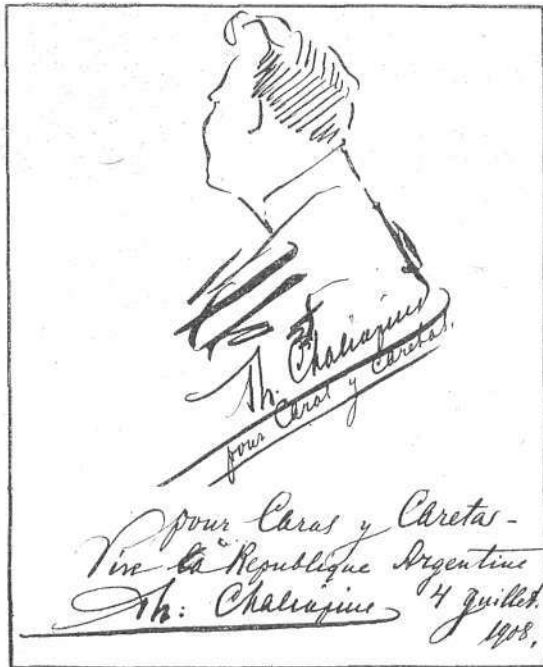 Th. Chaliapine
pour Caras y Caretas.
pour Caras y Caretas -
Vive la Republique Argentine
Th: Chaliapine 4 Juillet.
1908.